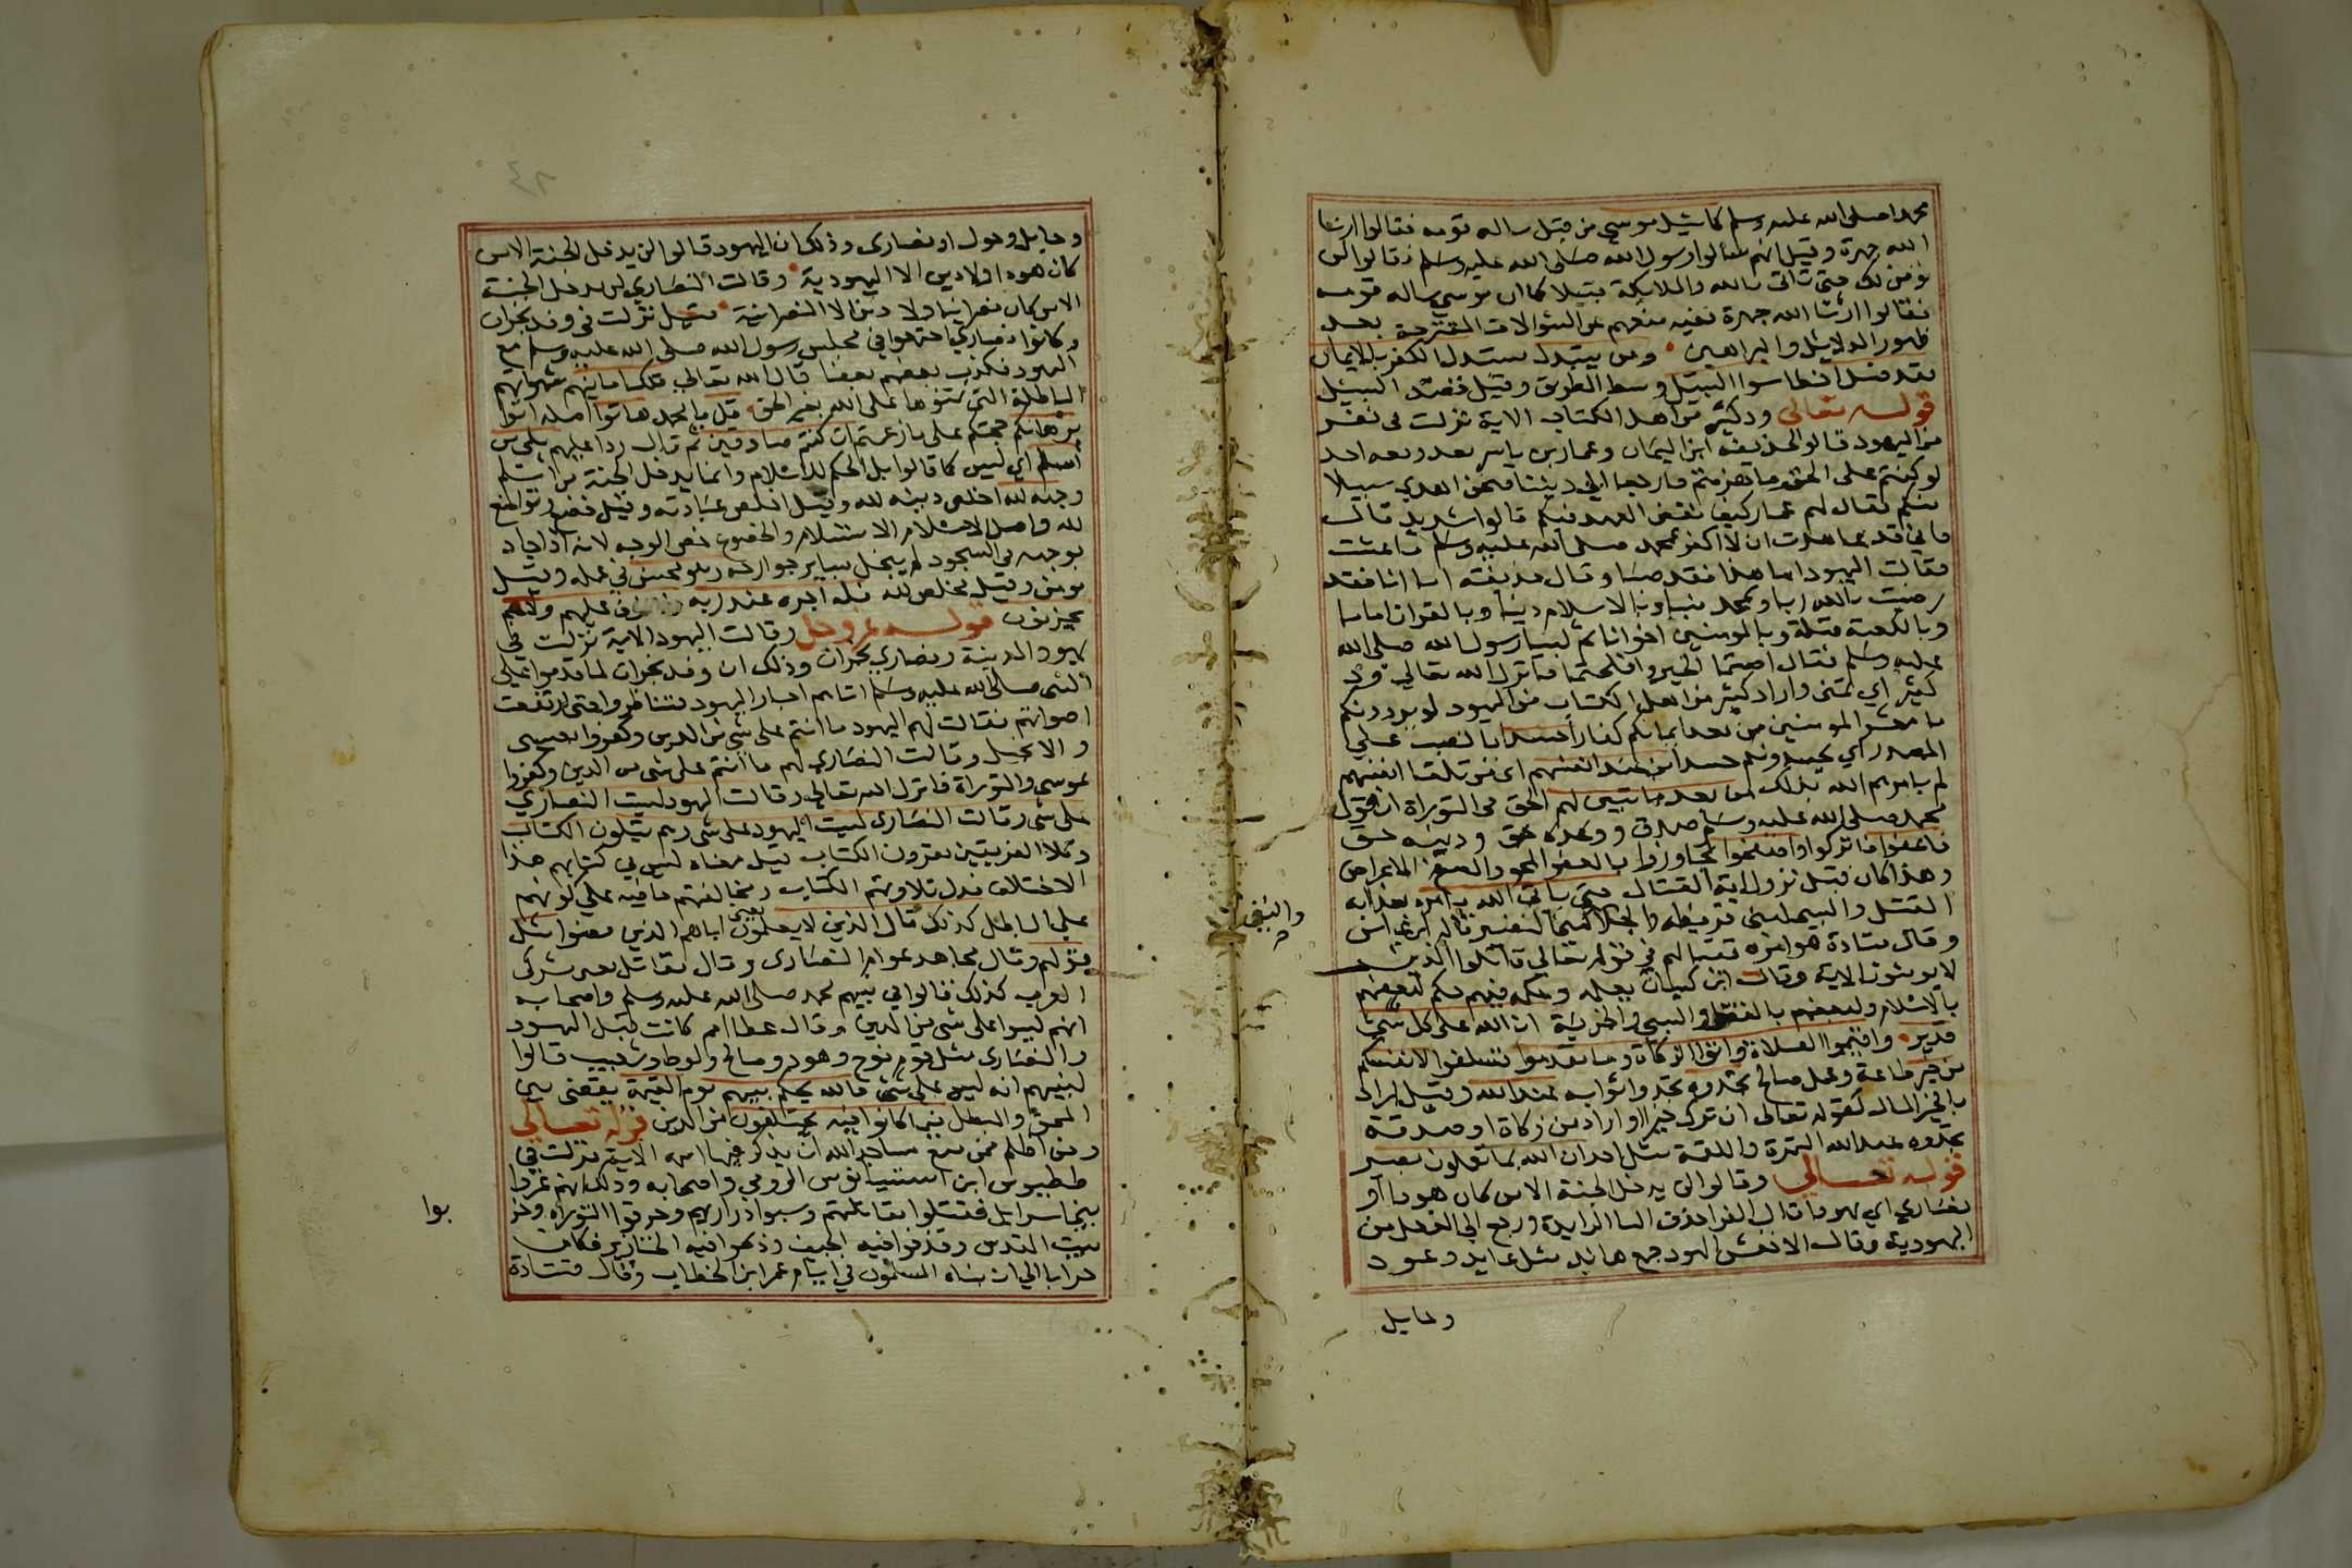 محمدا صلى الله عليه وسلم كما سئل موسى من قبل ساله قومه فقالوا ارنا
الله جهرة وقيل انهم سألوا رسول الله صلى الله عليه وسلم فقالوا لن
نؤمن لك حتى تاتي بالله والملايكة قبيلا كما ان موسي ساله قومه
فقالوا ارنا الله جهرة ففيه منعهم عن السؤالات المقترحة بعد
ظهور الدلايل والبراهين ومن يتبدل يستدل الكفر بالايمان
فقد ضل اخطا سوا السبيل وسط الطريق وقيل قصد السبيل
قوله تعالى ود كثير من اهل الكتاب الاية نزلت في نفر
من اليهود قالوا لحذيفة ابن اليمان وعمار بن ياسر بعد وقعة احد
لو كنتم على الحق ما هزمتم فارجعا الي ديننا فنحن اهدي سبيلا
منكم فقال لهم عمار كيف نقض العهد فيكم قالوا شديد قال
فاني قد عاهدت ان لا اكفر بمحمد صلى الله عليه وسلم ما عشت
فقالت اليهود اما هذا فقد صبا وقال حذيفة اما انا فقد
رضيت بالله ربا وبمحمد نبيا وبالاسلام دينا وبالقران اماما
وبالكعبة قبلة وبالمومنين اخوانا ثم اتيا رسول الله صلى الله
عليه وسلم فقال اصبتما الخير وافلحتما فانزل الله تعالى ود
كثير اي تمنى واراد كثير من اهل الكتاب من اليهود لو يردونكم
يا معشر المومنين من بعد ايمانكم كفارا حسدا بالنصب علي
المصدر اي يحسدونكم حسدا من عند انفسهم اي من تلقا انفسهم
لم يامرهم الله بذلك من بعد ما تبين لهم الحق في التوراة ان قول
محمد صلى الله عليه وسلم صدق ووعده حق ودينه حق
فاعفوا فاتركوا واصفحوا تجاوزوا فالعفو المحو والصفح الاعراض
وهذا كان قبل نزول اية القتال حتى ياتي الله بامره بعذابه
القتل والسبي لبني قريظة والجلا لبني النضير قاله ابن عباس
والنفي
وقال قتادة هو امره بقتالهم في قوله تعالي قاتلوا الذين
لا يومنون الاية وقال ابن كيسان بعلمه وحكمه فيهم حكم لبعضهم
بالاسلام ولبعضهم بالقتل والسبي والجزية ان الله على كل شي
قدير واقيموا الصلاة واتوا الزكاة وما تقدموا تسلفوا لانفسكم
من خير طاعة وعمل صالح تجدوه تجدوا ثوابه عند الله وقيل اراد
بالخير المال كقوله تعالى ان ترك خيرا واراد من زكاة او صدقة
تجدوه عند الله التمرة واللقمة مثل احد ان الله بما تعملون بصير
قوله تعالي وقالوا لن يدخل الجنة الا من كان هودا او
نصارى اي يهوديا قال الفرا حذف اليا الزايدة ورجع الي الفعل من
اليهودية وقال الاخفش الهود جمع هايد مثل عايد وعود
وحايل
وحايل وحول او نصارى وذلك ان اليهود قالوا لن يدخل الجنة الا من
كان هودا ولا دين الا اليهودية وقالت النصاري لن يدخل الجنة
الا من كان نصرانيا ولا دين الا النصرانية قيل نزلت في وفد نجران
وكانوا نصاري اجتمعوا في مجلس رسول الله صلى الله عليه وسلم مع
اليهود فكذب بعضهم بعضا قال الله تعالى تلك امانيهم شهواتهم
الباطلة التي تمنوها على الله بغير الحق قل يا محمد هاتوا اصله اتوا
برهانكم حجتكم على ما زعمتم ان كنتم صادقين ثم قال ردا عليهم بلى من
اسلم اي ليس كما قالوا بل الحكم للاسلام وانما يدخل الجنة من اسلم
وجهه لله اخلص دينه لله وقيل اخلص عبادته وقيل خضع وتواضع
لله واصل الاسلام الاستسلام والخضوع خص الوجه لانه اذا جاد
بوجهه في السجود لم يبخل بساير جوارحه وهو محسن في عمله وقيل
مومن وقيل مخلص لله فله اجره عند ربه ولا خوف عليهم ولا هم
يحزنون قوله عز وجل وقالت اليهود الاية نزلت في
يهود المدينة ونصاري نجران وذلك ان وفد نجران لما قدموا علي
النبي صلى الله عليه وسلم اتاهم احبار اليهود فتناظروا حتى ارتفعت
اصواتهم فقالت لهم اليهود ما انتم على شي من الدين وكفروا بعيسى
والانجيل وقالت النصاري لهم ما انتم على شي من الدين وكفروا
بموسى والتوراة فانزل الله تعالي وقالت اليهود ليست النصاري
على شي وقالت النصارى ليست اليهود على شي وهم يتلون الكتاب
وكلا الفريقين يقرون الكتاب قيل معناه ليس في كتابهم هذا
الاختلاف فدل تلاوتهم الكتاب ومخالفتهم ما فيه علي كونهم
علي الباطل كذلك قال الذين لا يعلمون يعني اباهم الذين مضوا مثل
قولهم وقال مجاهد عوام النصارى وقال مقاتل يعني مشركي
العرب كذلك قالوا في نبيهم محمد صلى الله عليه وسلم واصحابه
انهم ليسوا على شي من الدين وقال عطا امم كانت قبل اليهود
والنصارى مثل قوم نوح وهود وصالح ولوط وشعيب قالوا
لنبيهم انه ليس على شي فالله يحكم بينهم يوم القيمة يقضي بين
المحق والمبطل فيما كانوا فيه يختلفون من الدين قوله تعالي
ومن اظلم ممن منع مساجد الله ان يذكر فيها اسمه الاية نزلت في
ططيوس ابن استيسيانوس الرومي واصحابه وذلك انهم غزوا
بني اسرايل فقتلوا مقاتلتهم وسبوا ذراريهم وحرقوا التوراة وخر
بوا
بيت المقدس وقذفوا فيه الجيف وذبحوا فيه الخنازير فكان
خرابا الي ان بناه المسلمون في ايام عمر ابن الخطاب وقال قتادة